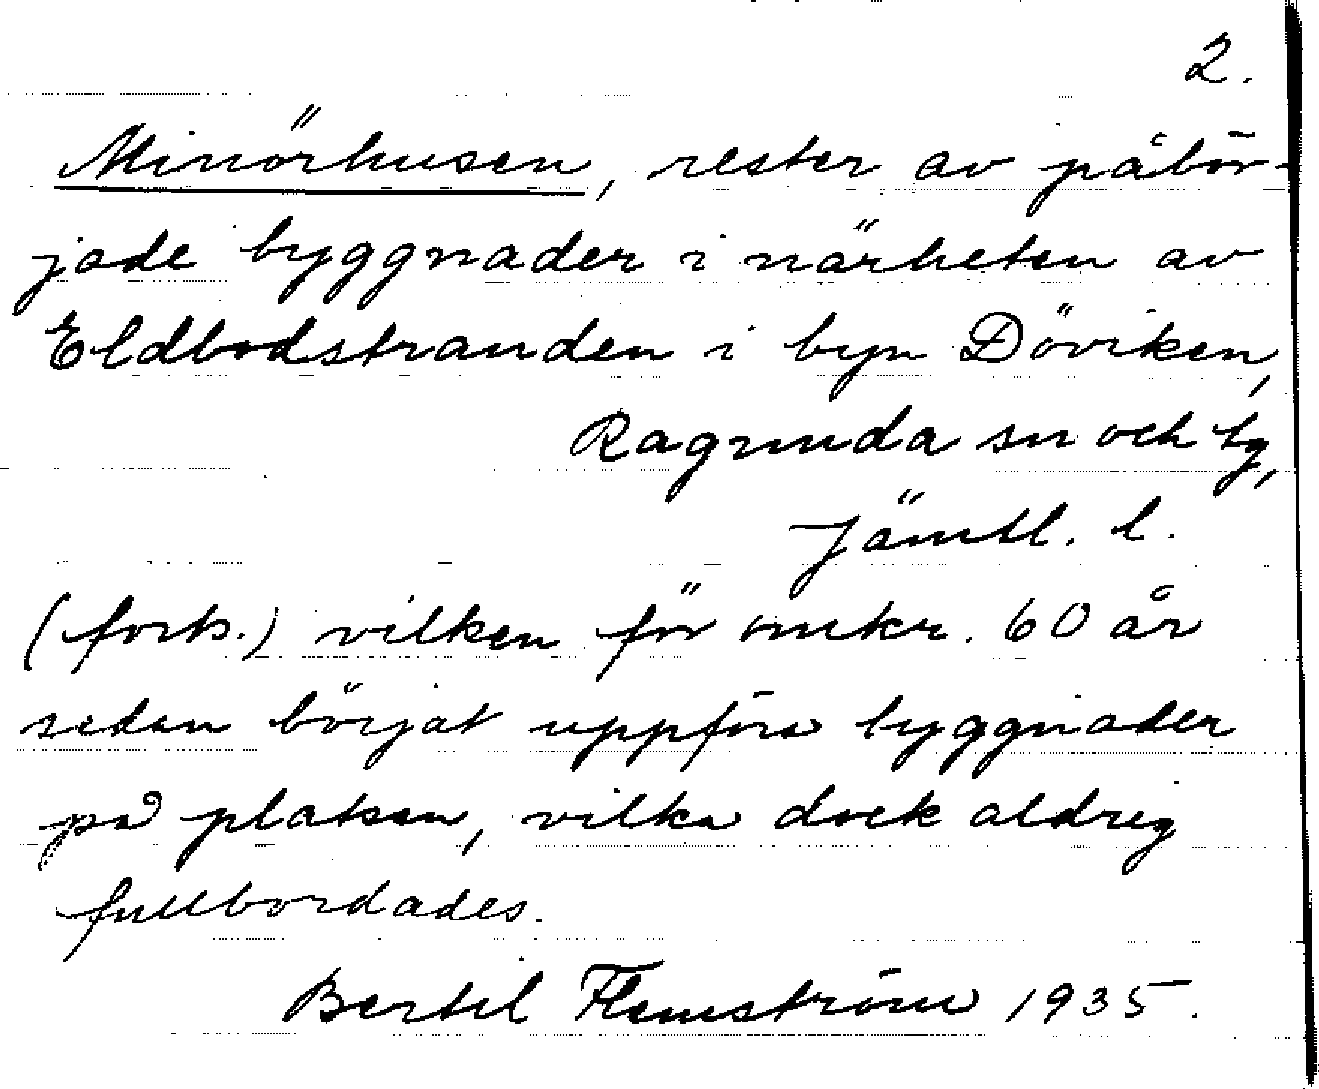 2.
Minörhusen, rester av påbör-
jade byggnader i närheten av
Eldbodstranden i byn Döviken,
Ragunda sn och tg,
Jämtl. l.
(forts.) vilken för omkr. 60 år
sedan börjat uppföra byggnader
på platsen, vilka dock aldrig
fullbordades.
Bertil Flemström 1935.